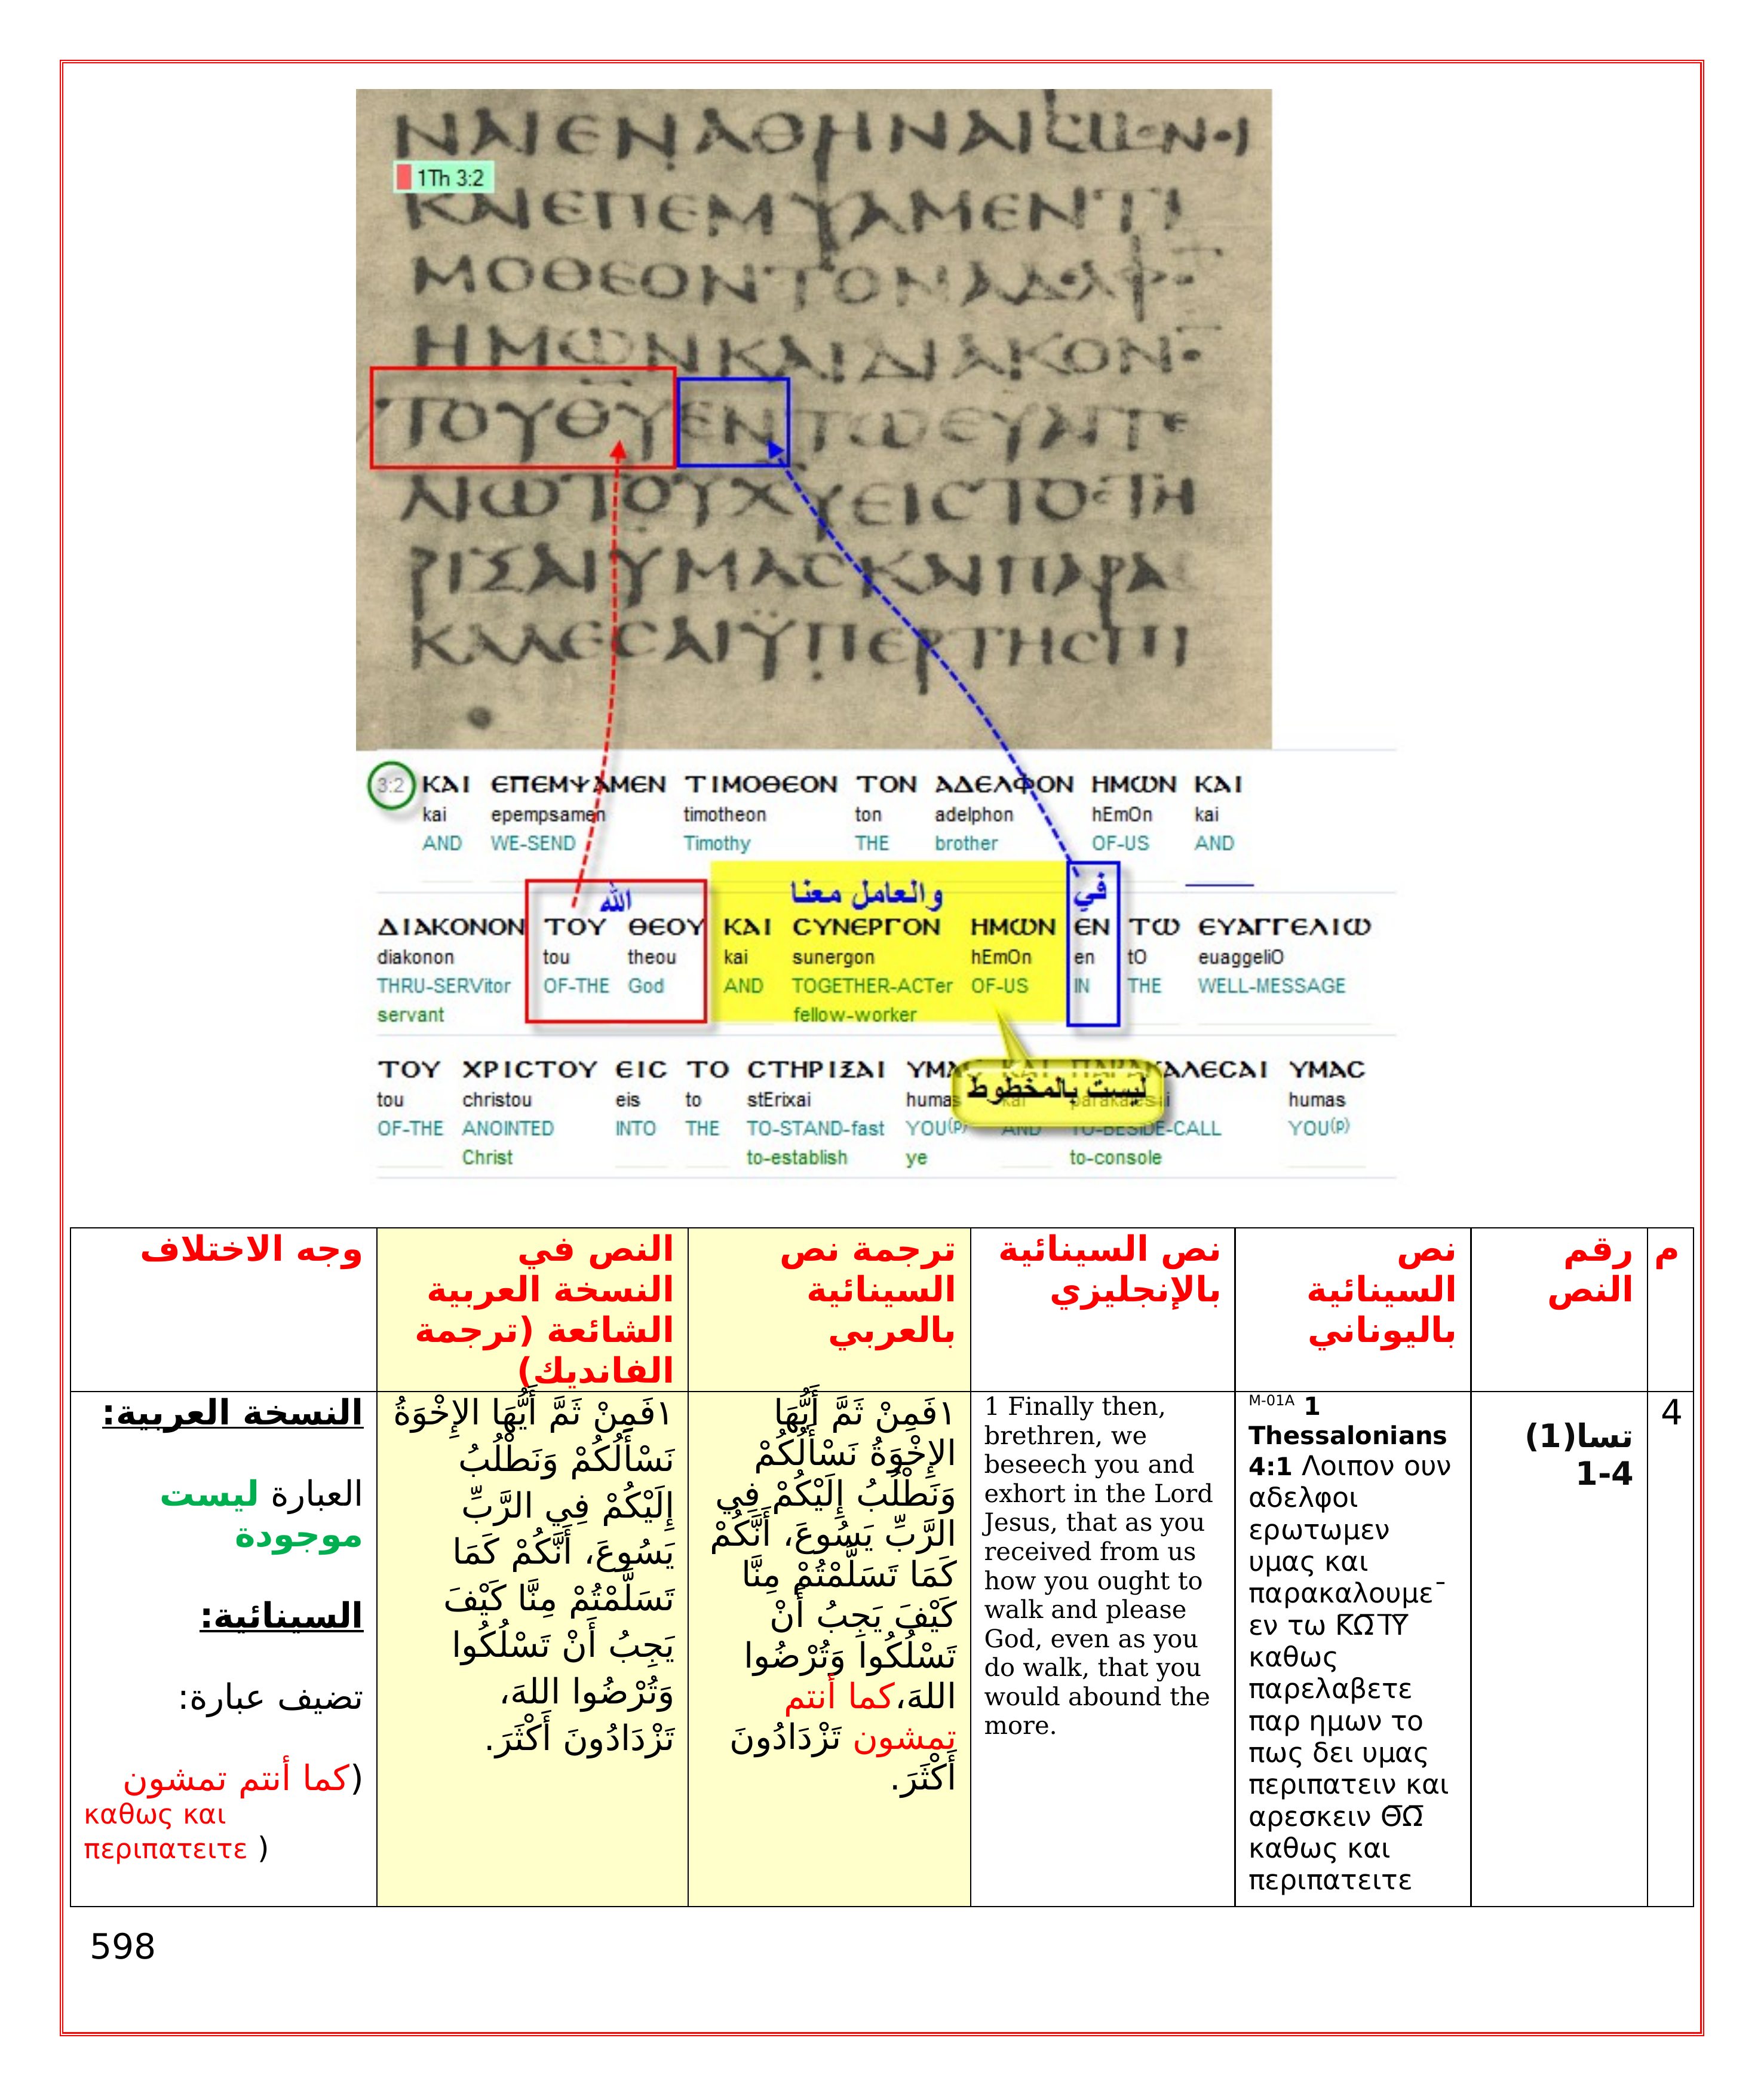 ΝΑΙΕΝΑΘΗΝΑΙϹ
1Th 3:2
ΚΑΙΕΠΕΜΨΑΜΕΝΤΙ
ΜΟΘΕΟΝΤΟΝΑΔΕΛΦ
ΗΜΩΝΚΑΙΔΙΑΚΟΝ
ΤΟΥΘΥΕΝΤΩΕΥΑΓΓΕ
ΛΙΩΤΟΥΧΥΕΙϹΤΟϹΤΗ
ΡΙΞΑΙΥΜΑϹΚΑΙΠΑΡΑ
ΚΑΛΕϹΑΙΫΠΕΡΤΗϹΠΙ
3:2 ΚΑΙ ΕΠΕΜΨΑΜΕΝ ΤΙΜΟΘΕΟΝ ΤΟΝ ΑΔΕΛΦΟΝ ΗΜΩΝ ΚΑΙ
kai epempsamen timotheon ton adelphon hEmOn kai
AND WE-SEND Timothy THE brother OF-US AND
الله والعامل معنا في
ΔΙΑΚΟΝΟΝ ΤΟΥ ΘΕΟΥ ΚΑΙ ϹΥΝΕΡΓΟΝ ΗΜΩΝ ΕΝ ΤΩ ΕΥΑΓΓΕΛΙΩ
diakonon tou theou kai sunergon hEmOn en tO euaggeliO
THRU-SERVitor OF-THE God AND TOGETHER-ACTer OF-US IN THE WELL-MESSAGE
servant fellow-worker
ΤΟΥ ΧΡΙϹΤΟΥ ΕΙϹ ΤΟ ϹΤΗΡΙΞΑΙ ΥΜΑϹ ΚΑΙ ΠΑΡΑΚΑΛΕϹΑΙ ΥΜΑϹ
ليست بالمخطوط
tou christou eis to stErixai humas kai parakalesai humas
OF-THE ANOINTED INTO THE TO-STAND-fast YOU(p) AND TO-BESIDE-CALL YOU(p)
Christ to-establish ye to-console
م
رقم
النص
نص
السينائية
باليوناني
نص السينائية
بالإنجليزي
ترجمة نص
السينائية
بالعربي
النص في
النسخة العربية
الشائعة (ترجمة
الفانديك)
وجه الاختلاف
4
تسا(1)
1-4
M-01A 1
Thessalonians
4:1 Λοιπον ουν
αδελφοι
ερωτωμεν
υμας και
παρακαλουμε¯
εν τω Κ̅Ω̅ Ι̅Υ̅
καθως
παρελαβετε
παρ ημων το
πως δει υμας
περιπατειν και
αρεσκειν Θ̅Ω̅
καθως και
περιπατειτε
1 Finally then,
brethren, we
beseech you and
exhort in the Lord
Jesus, that as you
received from us
how you ought to
walk and please
God, even as you
do walk, that you
would abound the
more.
١فَمِنْ ثَمَّ أَيُّهَا
الإِخْوَةُ نَسْأَلُكُمْ
وَنَطْلُبُ إِلَيْكُمْ فِي
الرَّبِّ يَسُوعَ، أَنَّكُمْ
كَمَا تَسَلَّمْتُمْ مِنَّا
كَيْفَ يَجِبُ أَنْ
تَسْلُكُوا وَتُرْضُوا
اللهَ،كما أنتم
تمشون تَزْدَادُونَ
أَكْثَرَ.
١فَمِنْ ثَمَّ أَيُّهَا الإِخْوَةُ
نَسْأَلُكُمْ وَنَطْلُبُ
إِلَيْكُمْ فِي الرَّبِّ
يَسُوعَ، أَنَّكُمْ كَمَا
تَسَلَّمْتُمْ مِنَّا كَيْفَ
يَجِبُ أَنْ تَسْلُكُوا
وَتُرْضُوا اللهَ،
تَزْدَادُونَ أَكْثَرَ.
النسخة العربية:
العبارة ليست
موجودة
السينائية:
تضيف عبارة:
(كما أنتم تمشون
καθως και
περιπατειτε )
598